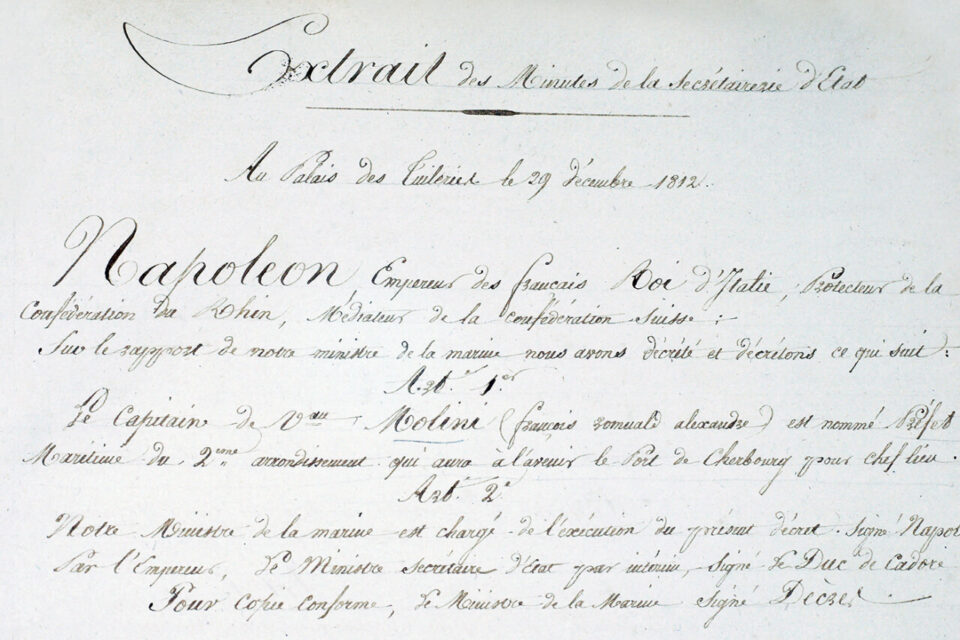 Extrait des Minutes de la Secrétairerie d'Etat
Au Palais des Tuileries le 29 décembre 1812.
Napoleon, Empereur des français Roi d'Italie, Protecteur de la
Confédération du Rhin, Médiateur de la confédération Suisse;
Sur le rapport de notre ministre de la marine nous avons décrété et décrétons ce qui suit:
Art. 1er
Le Capitain de Vau Molini (françois romuald alexandre) est nommé Préfet
Maritime du 2eme arrondissement qui aura à l'avenir le Port de Cherbourg pour chef lieu.
Art. 2e
Notre Ministre de la marine est chargé de l'exécution du présent décret. Signé Napol
Par l'Empereur, Le Ministre Secrétaire d'Etat par intérim, signé Le Duc de Cadore
Pour Copie Conforme, Le Ministre de la Marine signé Decrès.